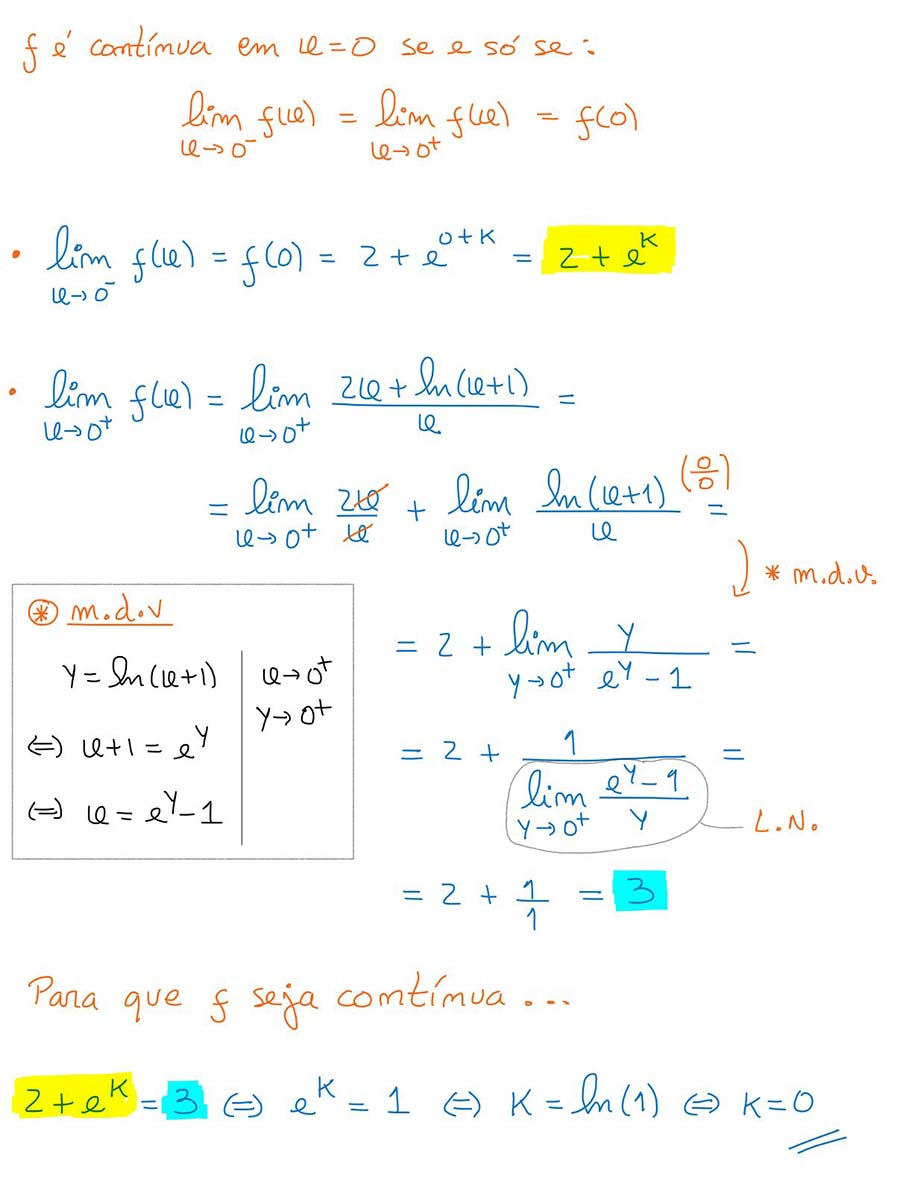 f é contínua em x=0 se e só se:
lim x→0⁻ f(x) = lim x→0⁺ f(x) = f(0)
• lim x→0⁻ f(x) = f(0) = 2 + e^(0+K) = 2 + e^K
• lim x→0⁺ f(x) = lim x→0⁺ (2x + ln(x+1))/x =
= lim x→0⁺ 2x/x + lim x→0⁺ ln(x+1)/x (0/0) =
* m.d.v.
⊛ m.d.v
y = ln(x+1) | x→0⁺
y→0⁺
⇔ x+1 = e^y
⇔ x = e^y - 1
= 2 + lim y→0⁺ y/(e^y - 1) =
= 2 + 1/(lim y→0⁺ (e^y - 1)/y) =
L.N.
= 2 + 1/1 = 3
Para que f seja contínua ...
2 + e^K = 3 ⇔ e^K = 1 ⇔ K = ln(1) ⇔ K = 0